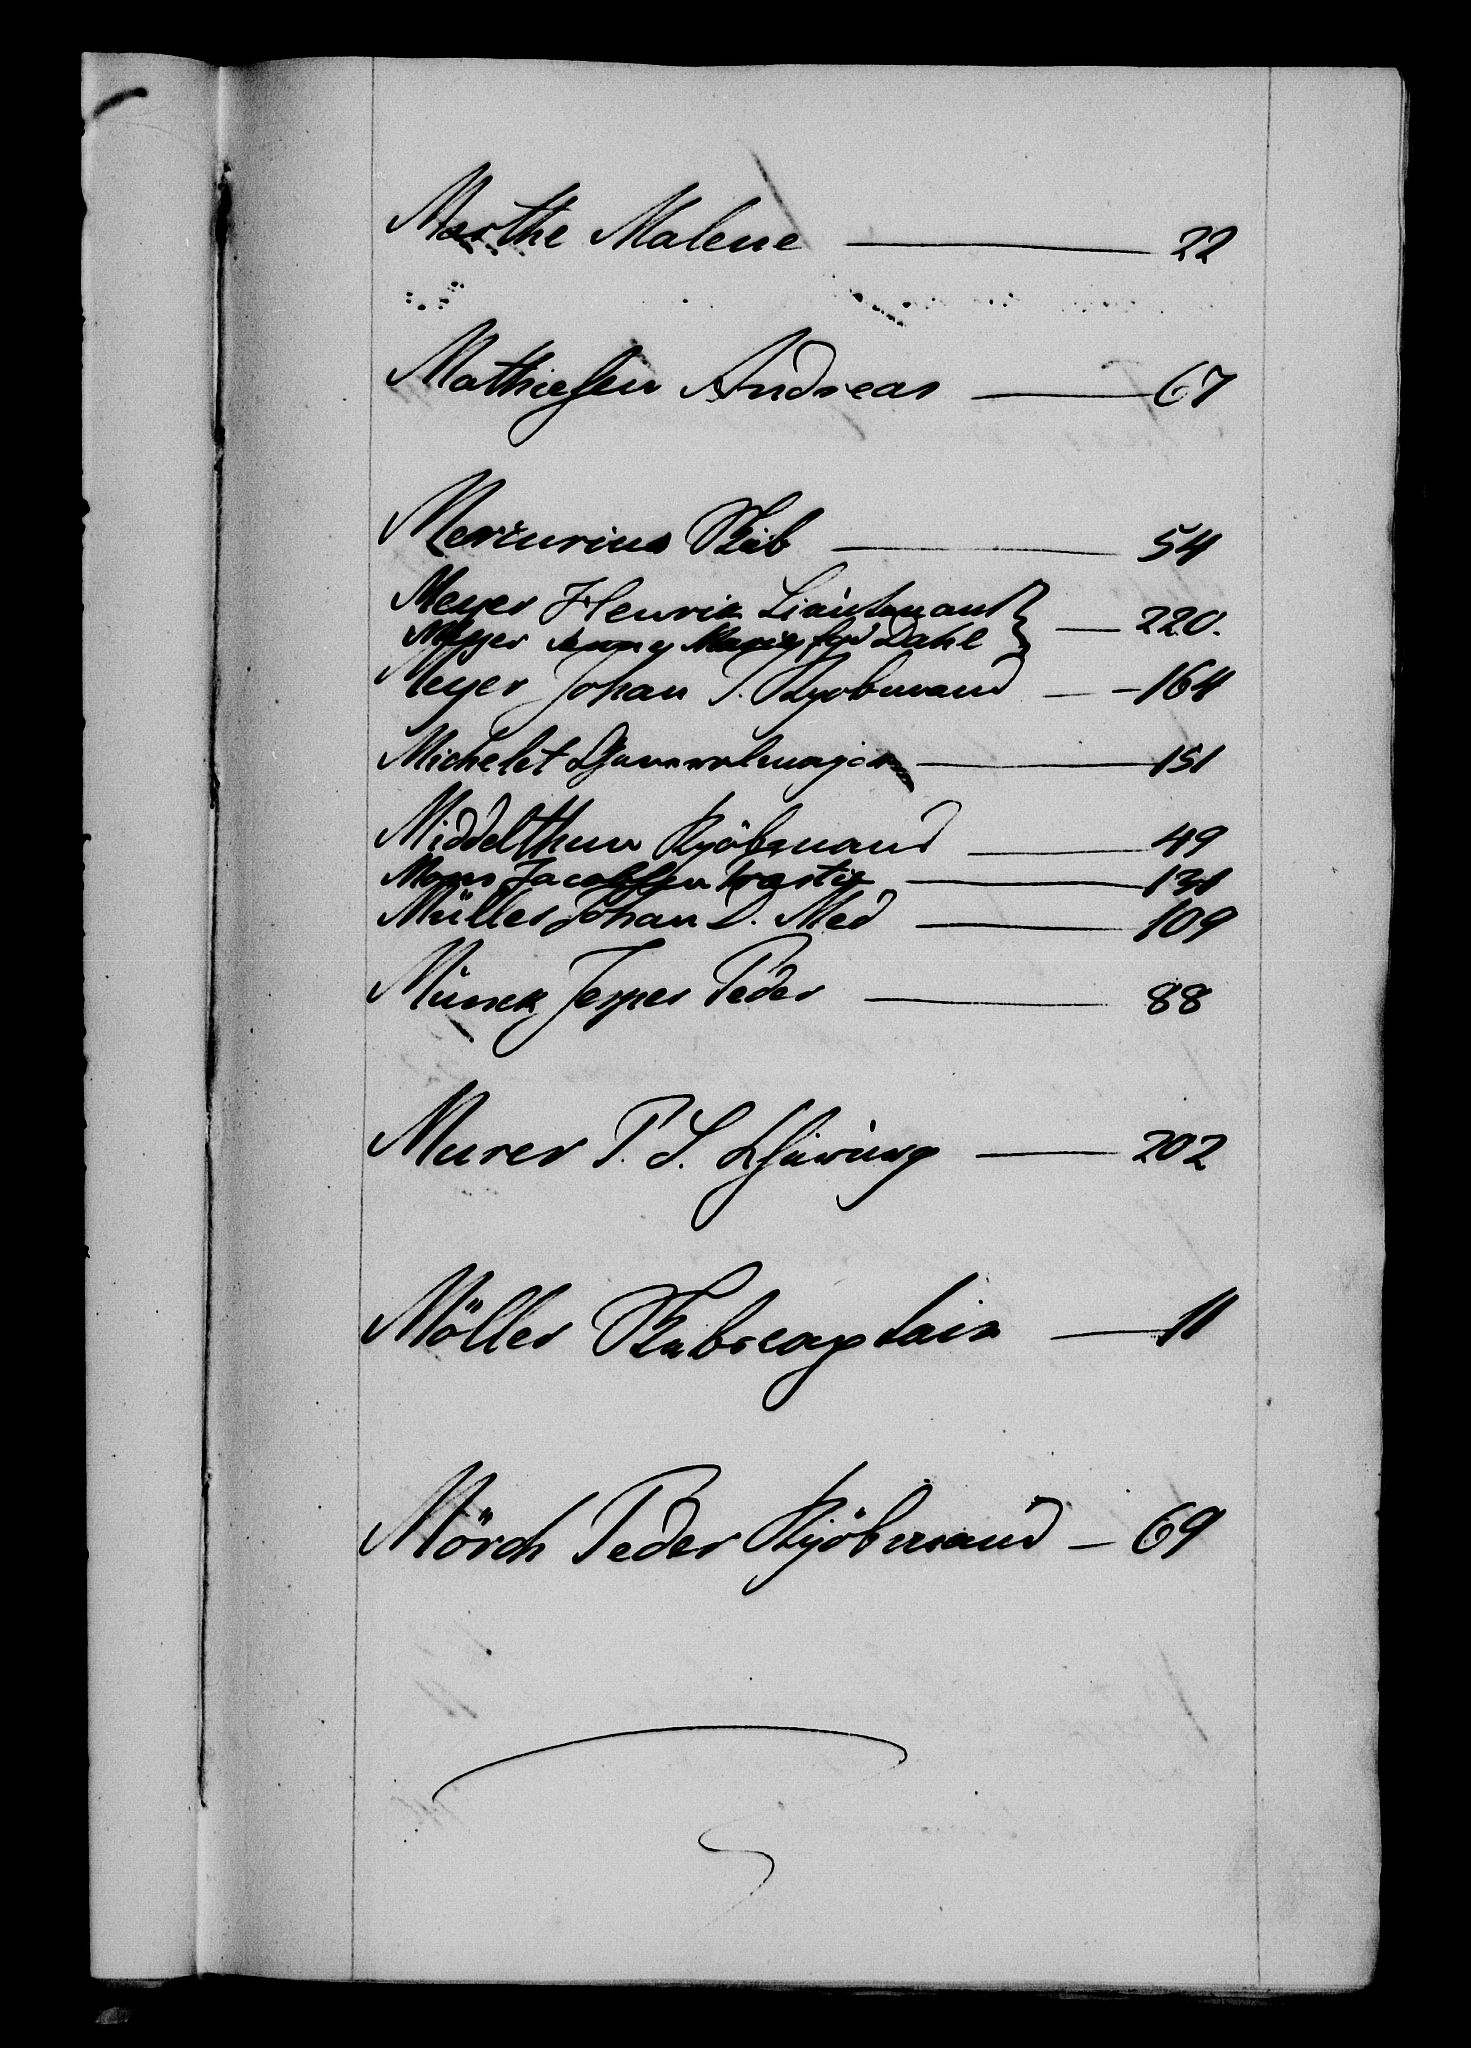 Marthe Malene — 22
Mathiesen Andreas — 67
Mercurius Skib — 54
Meyer Henrik Lieutenant
Meyer Anne Marie fød Dahl } — 220.
Meyer Johan P. Kjøbmand — 164
Michelet Generalmajor — 151
Middelthun Kjöbmand — 49
Mons Jacobsen — 131
Müller Johan D. Med — 109
Munck Jesper Peder — 88
Murer P. S. — 202
Möller Stabscaptain — 11
Mörch Peder Kjöbmand — 69